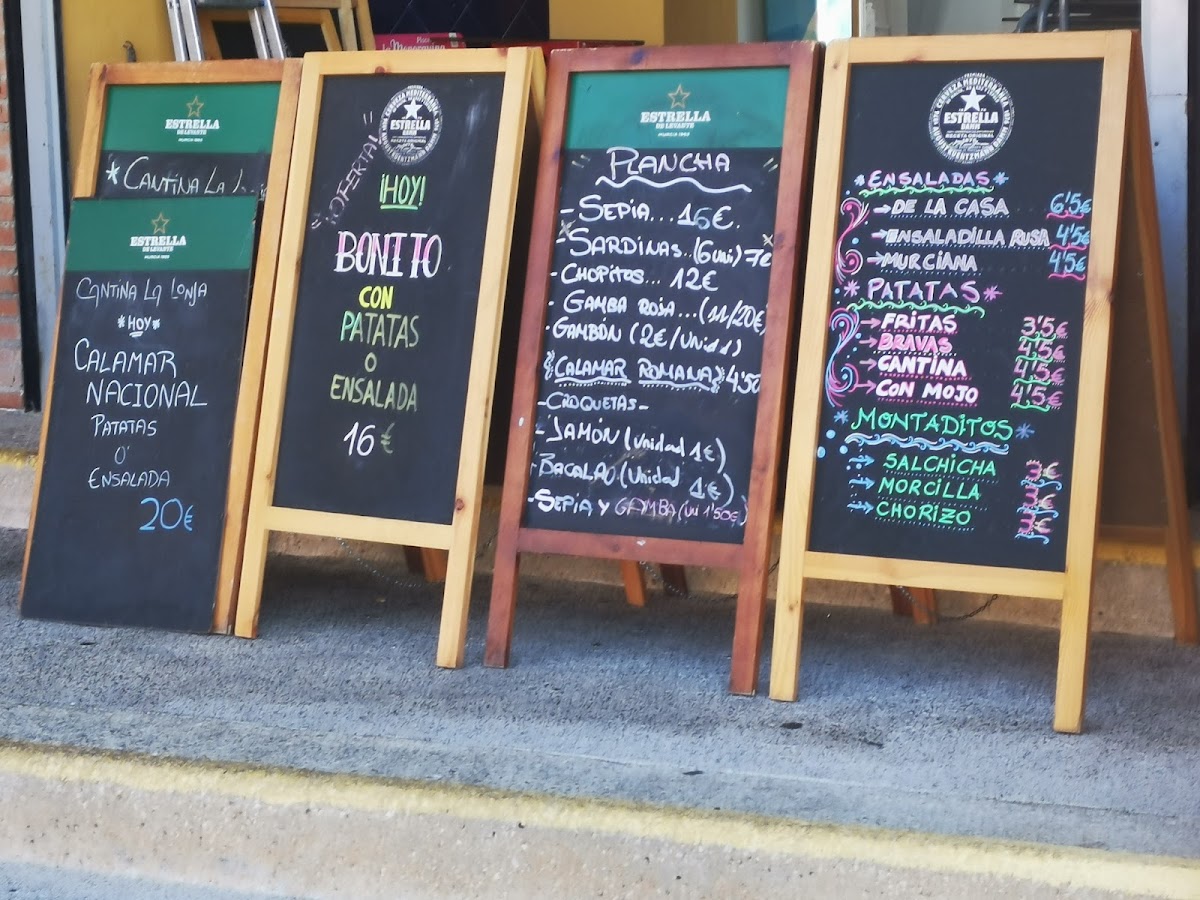 ESTRELLA
DE LEVANTE
* CANTINA LA L
ESTRELLA
DE LEVANTE
CANTINA LA LONJA
*HOY*
CALAMAR
NACIONAL
PATATAS
O'
ENSALADA
20€
¡OFERTA!
CERVEZA MEDITERRÁNEA
ESTRELLA
DAMM
RECETA ORIGINAL
¡HOY!
BONITO
CON
PATATAS
O
ENSALADA
16€
ESTRELLA
DE LEVANTE
PLANCHA
- SEPIA... 16€.
- SARDINAS..(6uni) 7€
- CHOPITOS... 12€
- GAMBA ROJA...(11/20€)
- GAMBÓN (2€/Unid1)
CALAMAR ROMANA 4'50
- CROQUETAS -
- JAMÓN (Unidad 1€)
- BACALAO (Unidad 1€)
- SEPIA Y GAMBA (Un 1'50€)
CERVEZA MEDITERRÁNEA
ESTRELLA
DAMM
RECETA ORIGINAL
AUGUST KUENTZMANN DAMM
* ENSALADAS *
→ DE LA CASA 6'5€
→ ENSALADILLA RUSA 4'5€
→ MURCIANA 4'5€
* PATATAS *
→ FRITAS 3'5€
→ BRAVAS 4'5€
→ CANTINA 4'5€
→ CON MOJO 4'5€
* MONTADITOS *
→ SALCHICHA
→ MORCILLA
→ CHORIZO